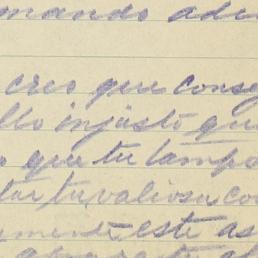 mando ade
creo que conse
llo injusto que
que tu tampo
tu valiosa coo
mente este as